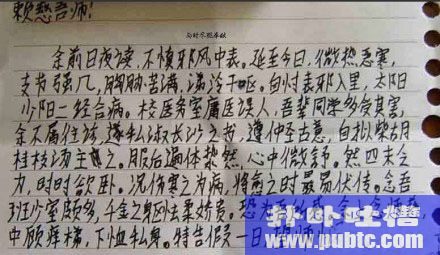 敬慈吾师:
余前日夜读，不慎邪风中表。延至今日，微热恶寒，
支节强几，胸胁苦满，涕泠干呕。自忖表邪入里，太阳
少阳二经合病。校医务室庸医误人，吾辈同学多受其害，
余不属往诊，遂私淑长沙之书，遵仲圣古意，自拟柴胡
桂枝汤主之。服后遍体漐然，心中微 然四末乏
力，时时欲卧。况伤寒之为病，将愈之时最易伏传。念吾
班少室颇多，千金之躯怯柔娇贵。恐为吾
中顾 梯，下恤私身。特告假一日 望师
扑扑吐槽
www.pubtc.com